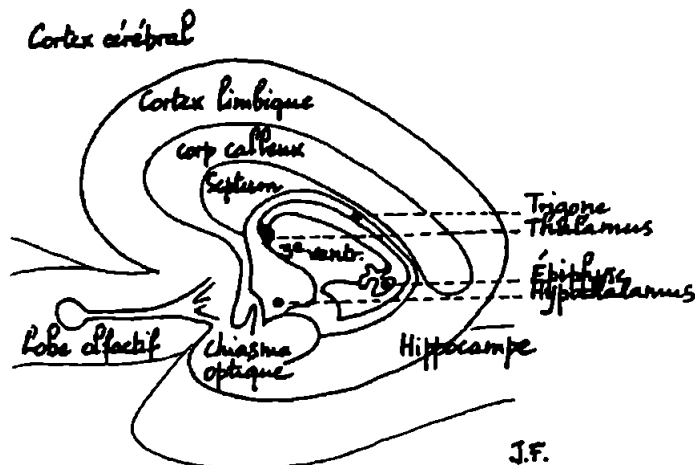 Cortex cérébral
Cortex limbique
corp calleux
Septum
Trigone
Thalamus
3e ventr.
Épiphyse
Hypothalamus
Lobe olfactif
Chiasma
optique
Hippocampe
J.F.